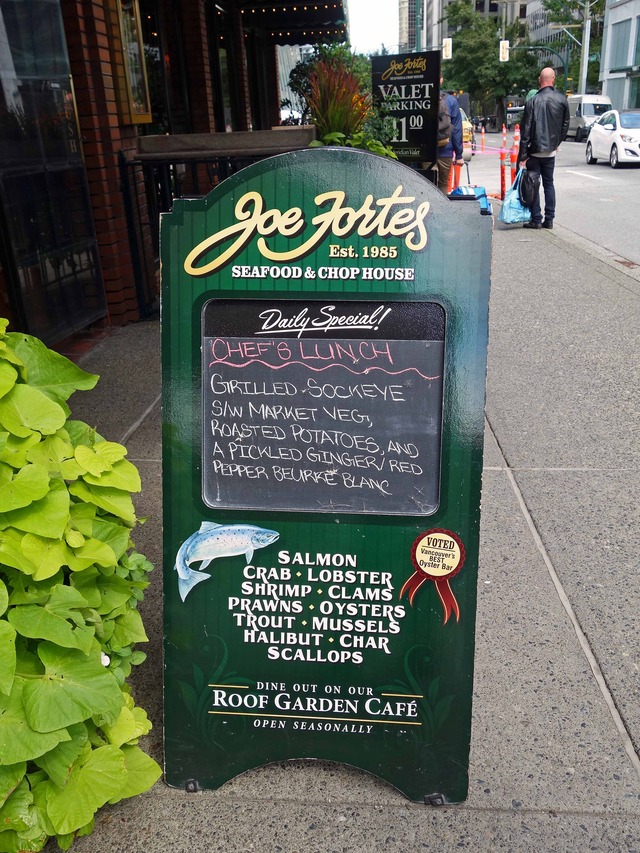 Joe Fortes
EST. 1985
SEAFOOD & CHOP HOUSE
VALET
PARKING
Joe Fortes
Est. 1985
SEAFOOD & CHOP HOUSE
Daily Special!
CHEF'S LUNCH
GRILLED SOCKEYE
S/W MARKET VEG,
ROASTED POTATOES, AND
A PICKLED GINGER/RED
PEPPER BEURRE BLANC
VOTED
Vancouver's
BEST
Oyster Bar
SALMON
CRAB · LOBSTER
SHRIMP · CLAMS
PRAWNS · OYSTERS
TROUT · MUSSELS
HALIBUT · CHAR
SCALLOPS
DINE OUT ON OUR
ROOF GARDEN CAFÉ
OPEN SEASONALLY